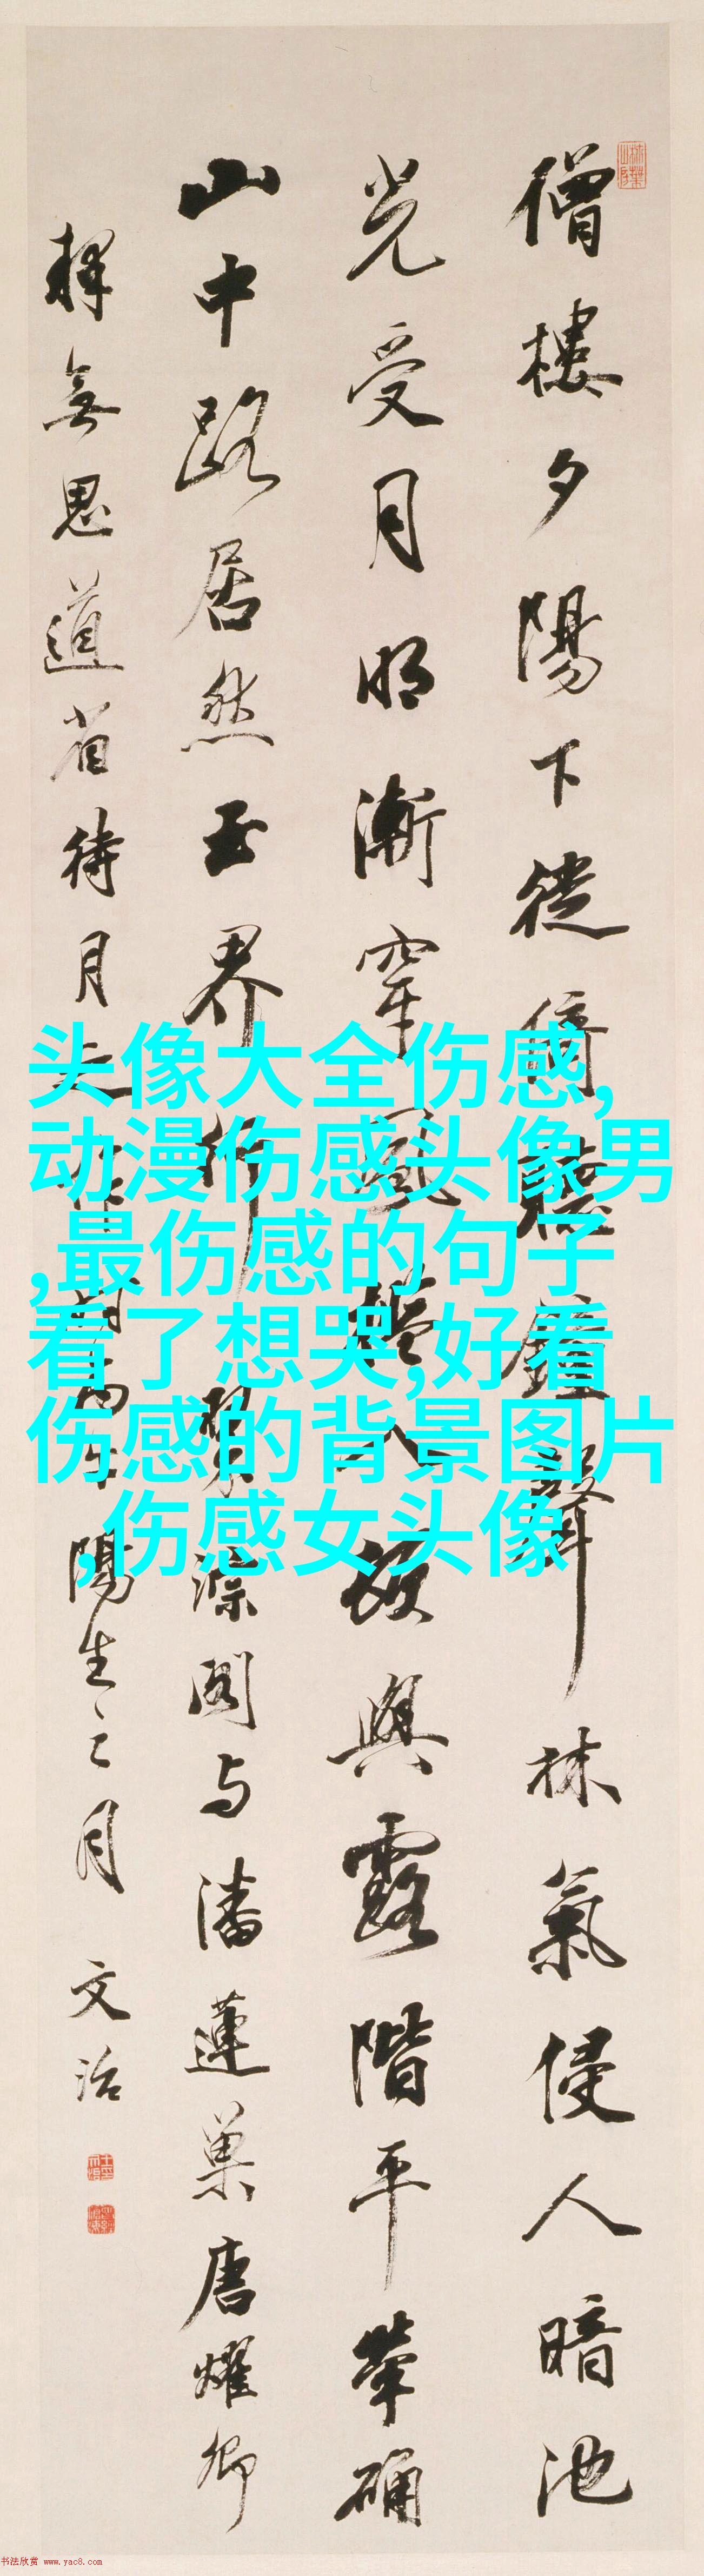 僧樓夕陽下徙倚聽鐘聲林氣侵人暗池
光受月明漸穿風磴入與露階平犖确
山中路居然玉界行深閣与潘蓮巢唐耀卿
釋無思道省待月之作陽生之月 文治
头像大全伤感,
动漫伤感头像男
,最伤感的句子
看了想哭,好看
伤感的背景图片
,伤感女头像
书法欣赏 www.yac8.com